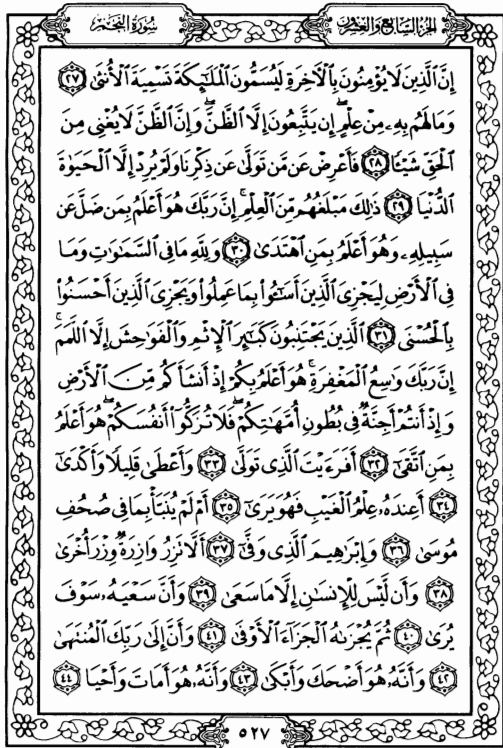 سُورَةُ النَّجْمِ الجُزْءُ السَّابِعُ وَالعِشْرُونَ
إِنَّ ٱلَّذِينَ لَا يُؤْمِنُونَ بِٱلْءَاخِرَةِ لَيُسَمُّونَ ٱلْمَلَٰٓئِكَةَ تَسْمِيَةَ ٱلْأُنثَىٰ ٢٧
وَمَا لَهُم بِهِۦ مِنْ عِلْمٍ ۖ إِن يَتَّبِعُونَ إِلَّا ٱلظَّنَّ ۖ وَإِنَّ ٱلظَّنَّ لَا يُغْنِى مِنَ
ٱلْحَقِّ شَيْـًٔا ٢٨ فَأَعْرِضْ عَن مَّن تَوَلَّىٰ عَن ذِكْرِنَا وَلَمْ يُرِدْ إِلَّا ٱلْحَيَوٰةَ
ٱلدُّنْيَا ٢٩ ذَٰلِكَ مَبْلَغُهُم مِّنَ ٱلْعِلْمِ ۚ إِنَّ رَبَّكَ هُوَ أَعْلَمُ بِمَن ضَلَّ عَن
سَبِيلِهِۦ وَهُوَ أَعْلَمُ بِمَنِ ٱهْتَدَىٰ ٣٠ وَلِلَّهِ مَا فِى ٱلسَّمَٰوَٰتِ وَمَا
فِى ٱلْأَرْضِ لِيَجْزِىَ ٱلَّذِينَ أَسَٰٓـُٔوا۟ بِمَا عَمِلُوا۟ وَيَجْزِىَ ٱلَّذِينَ أَحْسَنُوا۟
بِٱلْحُسْنَى ٣١ ٱلَّذِينَ يَجْتَنِبُونَ كَبَٰٓئِرَ ٱلْإِثْمِ وَٱلْفَوَٰحِشَ إِلَّا ٱللَّمَمَ ۚ
إِنَّ رَبَّكَ وَٰسِعُ ٱلْمَغْفِرَةِ ۚ هُوَ أَعْلَمُ بِكُمْ إِذْ أَنشَأَكُم مِّنَ ٱلْأَرْضِ
وَإِذْ أَنتُمْ أَجِنَّةٌ فِى بُطُونِ أُمَّهَٰتِكُمْ ۖ فَلَا تُزَكُّوٓا۟ أَنفُسَكُمْ ۖ هُوَ أَعْلَمُ
بِمَنِ ٱتَّقَىٰٓ ٣٢ أَفَرَءَيْتَ ٱلَّذِى تَوَلَّىٰ ٣٣ وَأَعْطَىٰ قَلِيلًا وَأَكْدَىٰٓ
٣٤ أَعِندَهُۥ عِلْمُ ٱلْغَيْبِ فَهُوَ يَرَىٰٓ ٣٥ أَمْ لَمْ يُنَبَّأْ بِمَا فِى صُحُفِ
مُوسَىٰ ٣٦ وَإِبْرَٰهِيمَ ٱلَّذِى وَفَّىٰٓ ٣٧ أَلَّا تَزِرُ وَازِرَةٌ وِزْرَ أُخْرَىٰ
٣٨ وَأَن لَّيْسَ لِلْإِنسَٰنِ إِلَّا مَا سَعَىٰ ٣٩ وَأَنَّ سَعْيَهُۥ سَوْفَ
يُرَىٰ ٤٠ ثُمَّ يُجْزَىٰهُ ٱلْجَزَآءَ ٱلْأَوْفَىٰ ٤١ وَأَنَّ إِلَىٰ رَبِّكَ ٱلْمُنتَهَىٰ
٤٢ وَأَنَّهُۥ هُوَ أَضْحَكَ وَأَبْكَىٰ ٤٣ وَأَنَّهُۥ هُوَ أَمَاتَ وَأَحْيَا ٤٤
٥٢٧